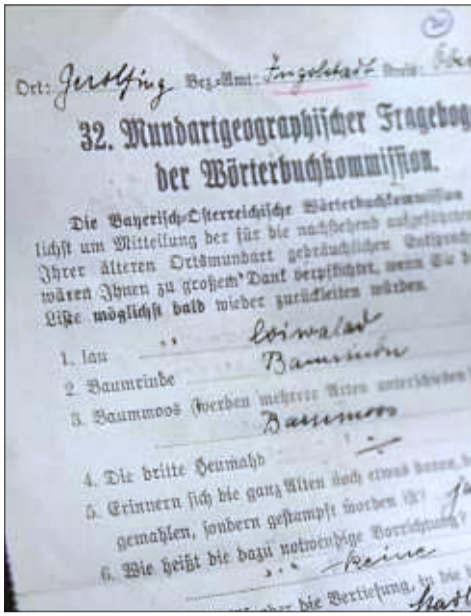 Ort: Gerolfing Bez.-Amt: Ingolstadt Kreis:
32. Mundartgeographischer Fragebog
der Wörterbuchkommission.
Die Bayerisch-Österreichische Wörterbuchkommission
lichst um Mitteilung der für die nachstehend aufgeführten
Ihrer älteren Ortsmundart gebräuchlichen
wären Ihnen zu großem Dank verpflichtet, wenn Sie d
Liste möglichst bald wieder zurückleiten würden.
1. lau loiwalad
2. Baumrinde
3. Baummoos (werden mehrere Arten unterschieden
Baummoos
4. Die dritte Heumahd
5. Erinnern sich die ganz Alten noch etwas davon,
gemahlen, sondern gestampft worden ist?
6. Wie heißt die dazu notwendige Vorrichtung?
keine
die Vertiefung, in die